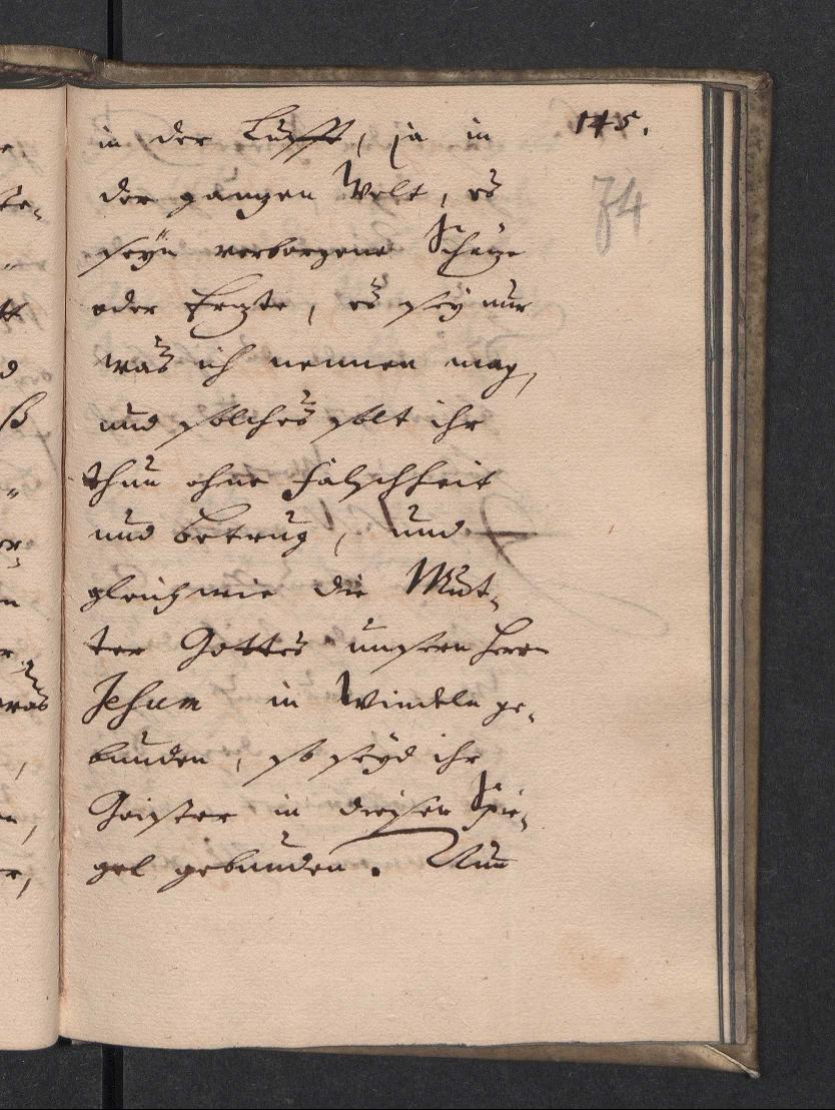 in der Lufft, ja in 145.
der gantzen Welt, es 74
seyn verborgene Schätze
oder Ertzte, es sey nur
was ich nennen mag,
und solches solt ihr
thun ohne falschheit
und betrug, und
gleich wie die Mut-
ter Gottes unsern Herrn
Jesum in Windeln ge-
bunden, so seyd ihr
Geister in diesen Spie-
gel gebunden. Nun